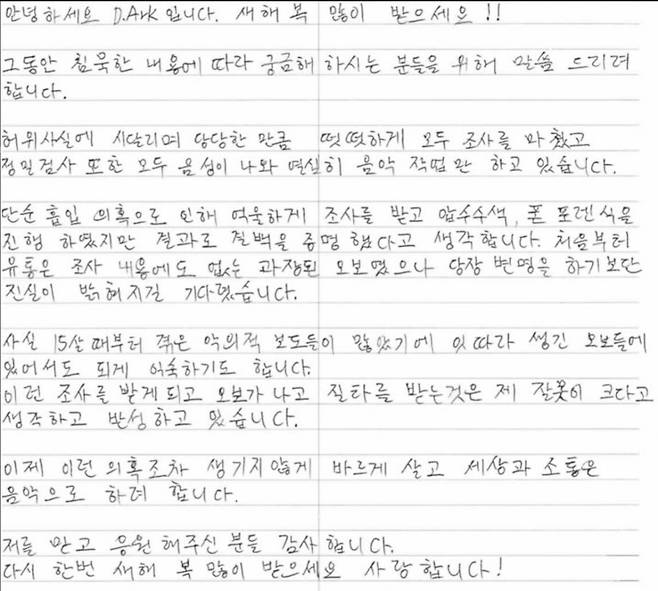 안녕하세요 D.Ark 입니다. 새해 복 많이 받으세요!!
그동안 침묵한 내용에 따라 궁금해 하시는 분들을 위해 말씀 드리려
합니다.
허위사실에 시달리며 당당한 만큼 떳떳하게 모두 조사를 마쳤고
정밀검사 또한 모두 음성이 나와 열심히 음악 작업만 하고 있습니다.
단순 흡입 의혹으로 인해 억울하게 조사를 받고 압수수색, 폰 포렌식을
진행 하였지만 결과로 결백을 증명 했다고 생각합니다. 처음부터
유통은 조사 내용에도 없는 과장된 오보였으나 당장 변명을 하기보단
진실이 밝혀지길 기다렸습니다.
사실 15살 때부터 겪은 악의적 보도들이 많았기에 잇따라 생긴 오보들에
있어서도 되게 익숙하기도 합니다.
이런 조사를 받게되고 오보가 나고 질타를 받는것은 제 잘못이 크다고
생각하고 반성하고 있습니다.
이제 이런 의혹조차 생기지않게 바르게 살고 세상과 소통은
음악으로 하려 합니다.
저를 믿고 응원 해주신 분들 감사합니다.
다시 한번 새해 복 많이 받으세요 사랑합니다!